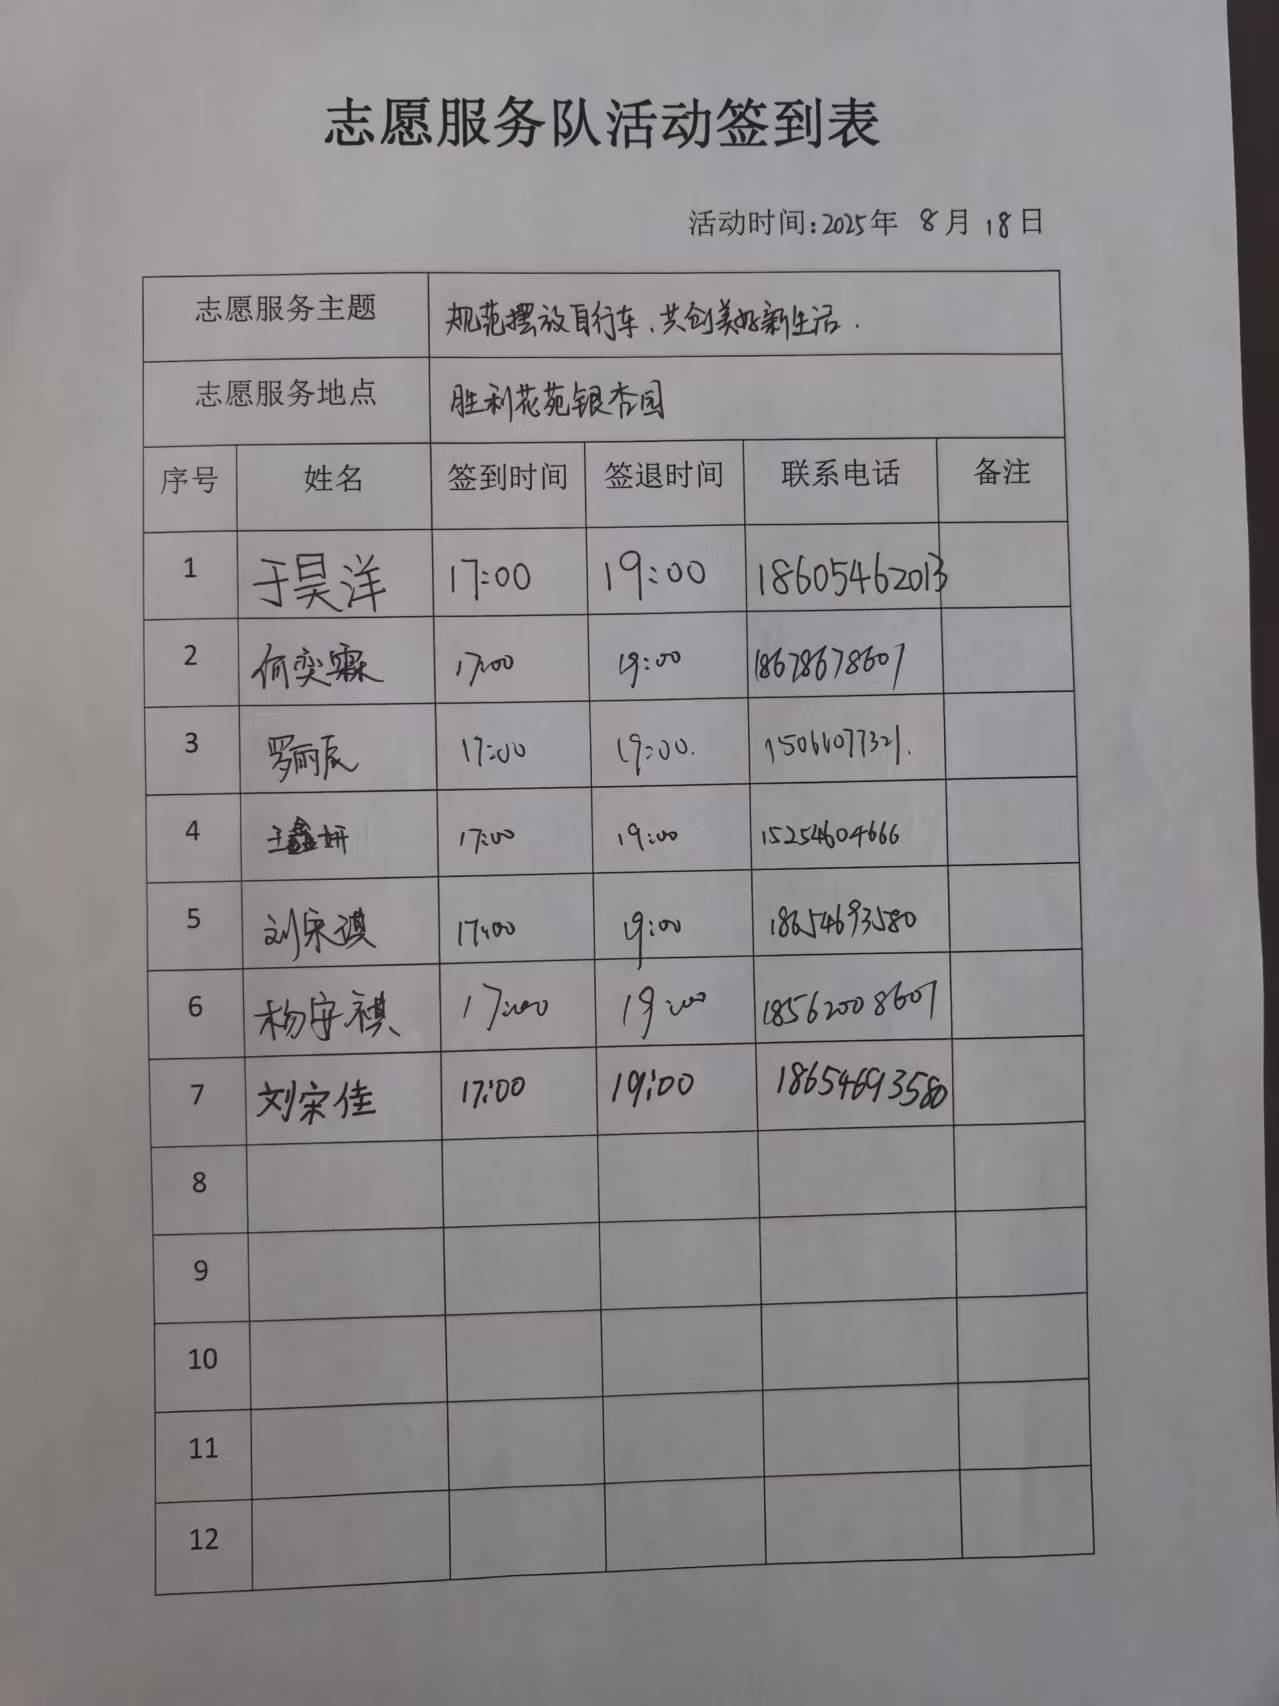 志愿服务队活动签到表
活动时间:2025年 8月18日
志愿服务主题 规范摆放自行车、共创美好新生活.
志愿服务地点 胜利花苑银杏园
序号 姓名 签到时间 签退时间 联系电话 备注
1 于昊洋 17:00 19:00 18605462013
2 何奕霖 17:00 19:00 18678678607
3 罗丽辰 17:00 19:00. 15066077321.
4 王鑫妍 17:00 19:00 15254604666
5 刘宋琪 17:00 19:00 18654693580
6 杨宇祺 17:00 19:00 18562008607
7 刘宋佳 17:00 19:00 18654693580
8
9
10
11
12